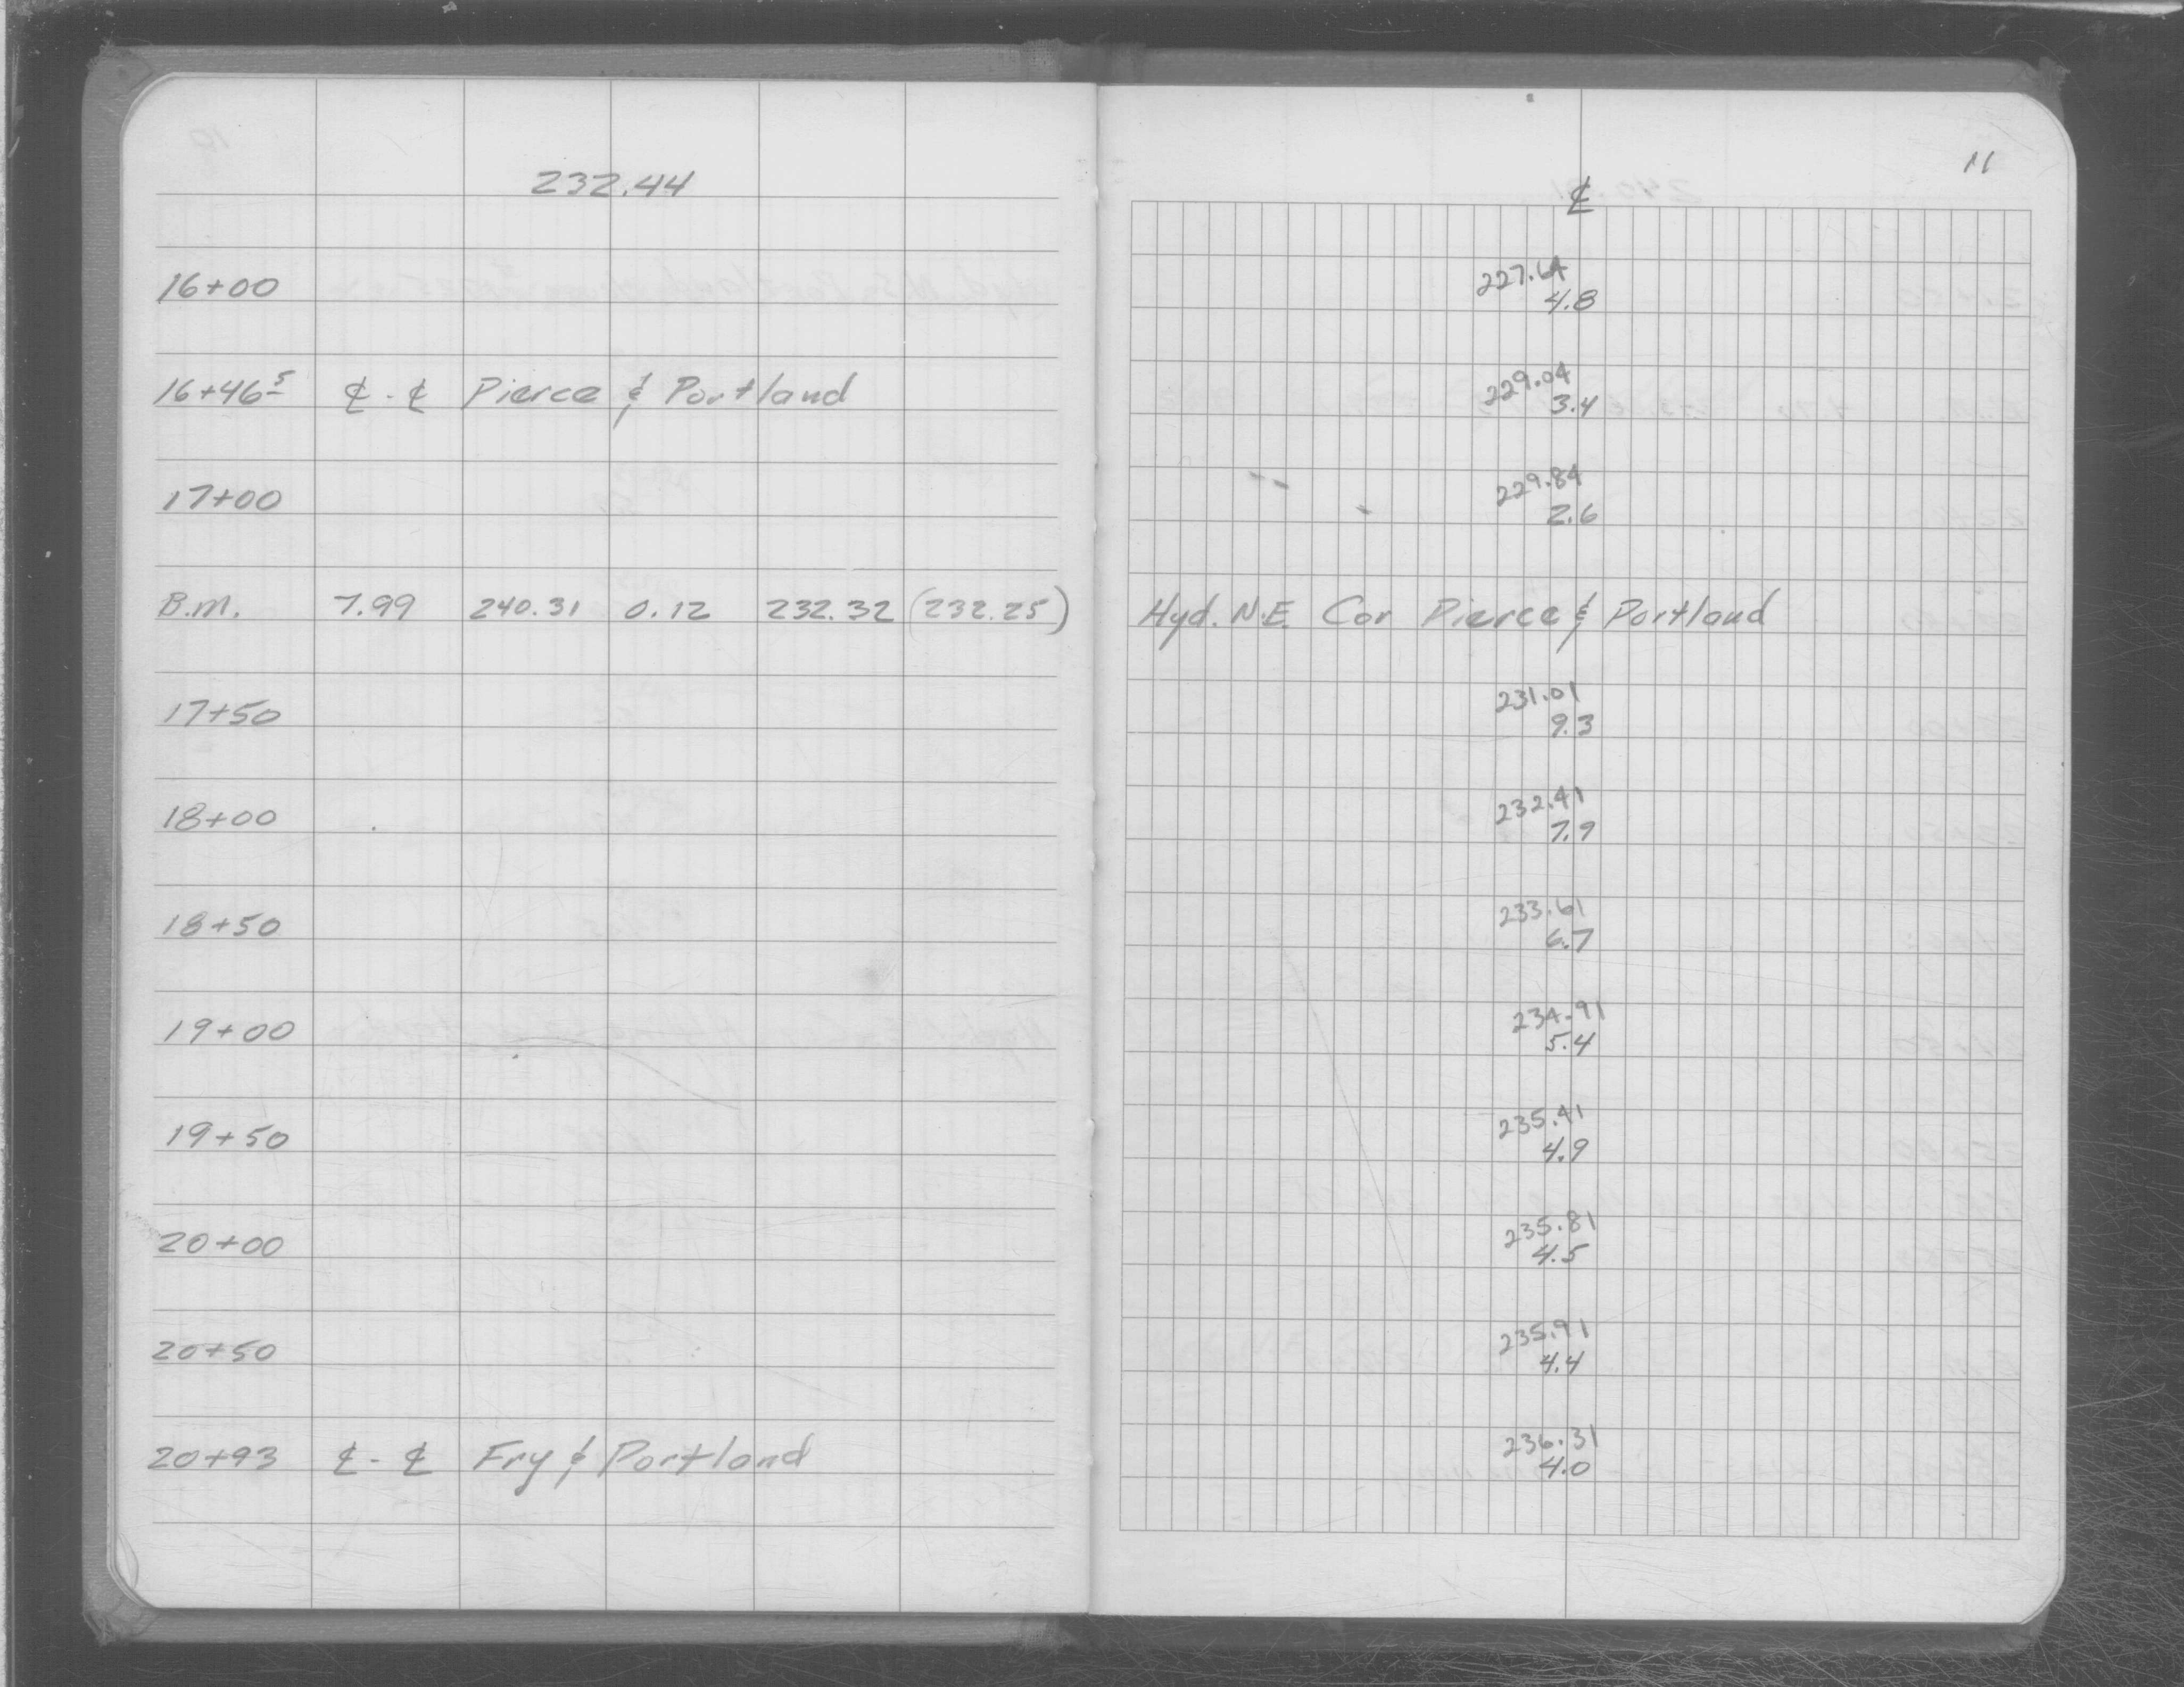 232.44
16+00
16+46⁵ ℄ - ℄ Pierce & Portland
17+00
B.M. 7.99 240.31 0.12 232.32 (232.25)
17+50
18+00
18+50
19+00
19+50
20+00
20+50
20+93 ℄ - ℄ Fry & Portland
11
℄
227.64
4.8
229.04
3.4
229.84
2.6
Hyd. N.E. Cor Pierce & Portland
231.01
9.3
232.41
7.9
233.61
6.7
234.91
5.4
235.41
4.9
235.81
4.5
235.91
4.4
236.31
4.0